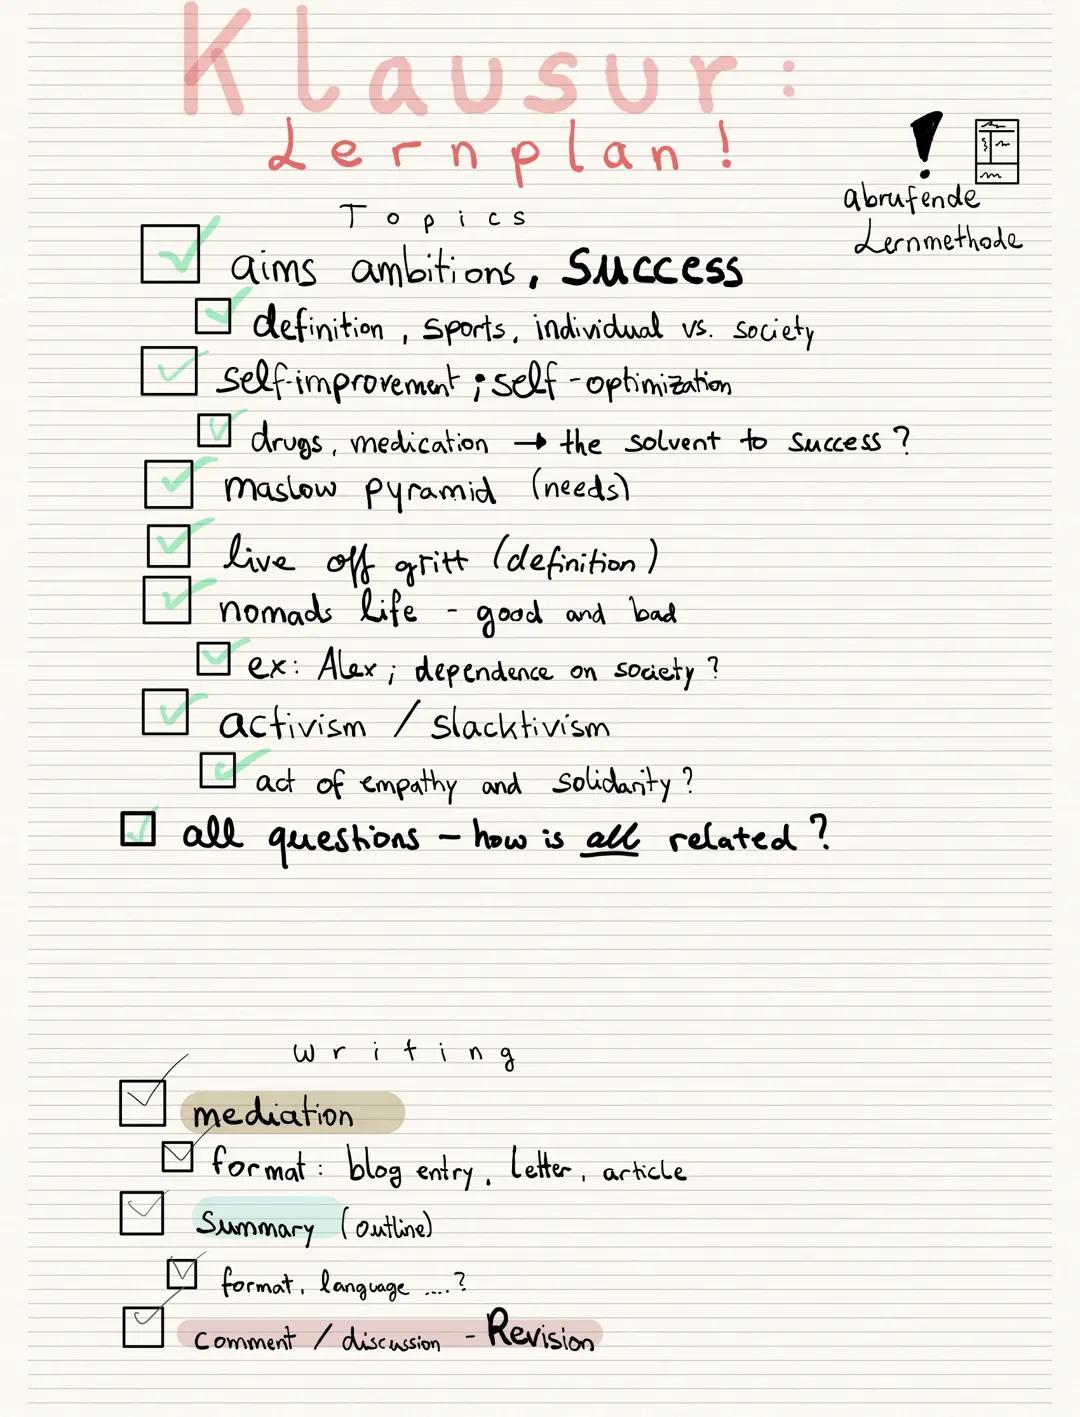 Klausur:
Lernplan!
abrufende
Lernmethode
Topics
aims ambitions, Success
definition, sports, individual vs. society
self-improvement; self-optimization
drugs, medication → the solvent to success?
maslow pyramid (needs)
live off gritt (definition)
nomads life - good and bad
ex: Alex; dependence on society?
activism / slacktivism
act of empathy and solidarity?
all questions - how is all related?
writing
mediation
format: blog entry, letter, article
Summary (outline)
format, language ....?
comment / discussion - Revision